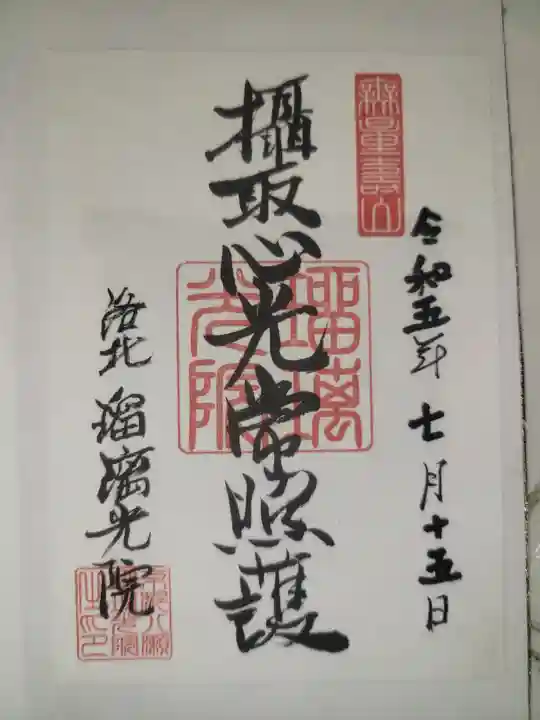 無量壽山
令和五年 七月十五日
攝取心光常照護
瑠璃光院
洛北 瑠璃光院